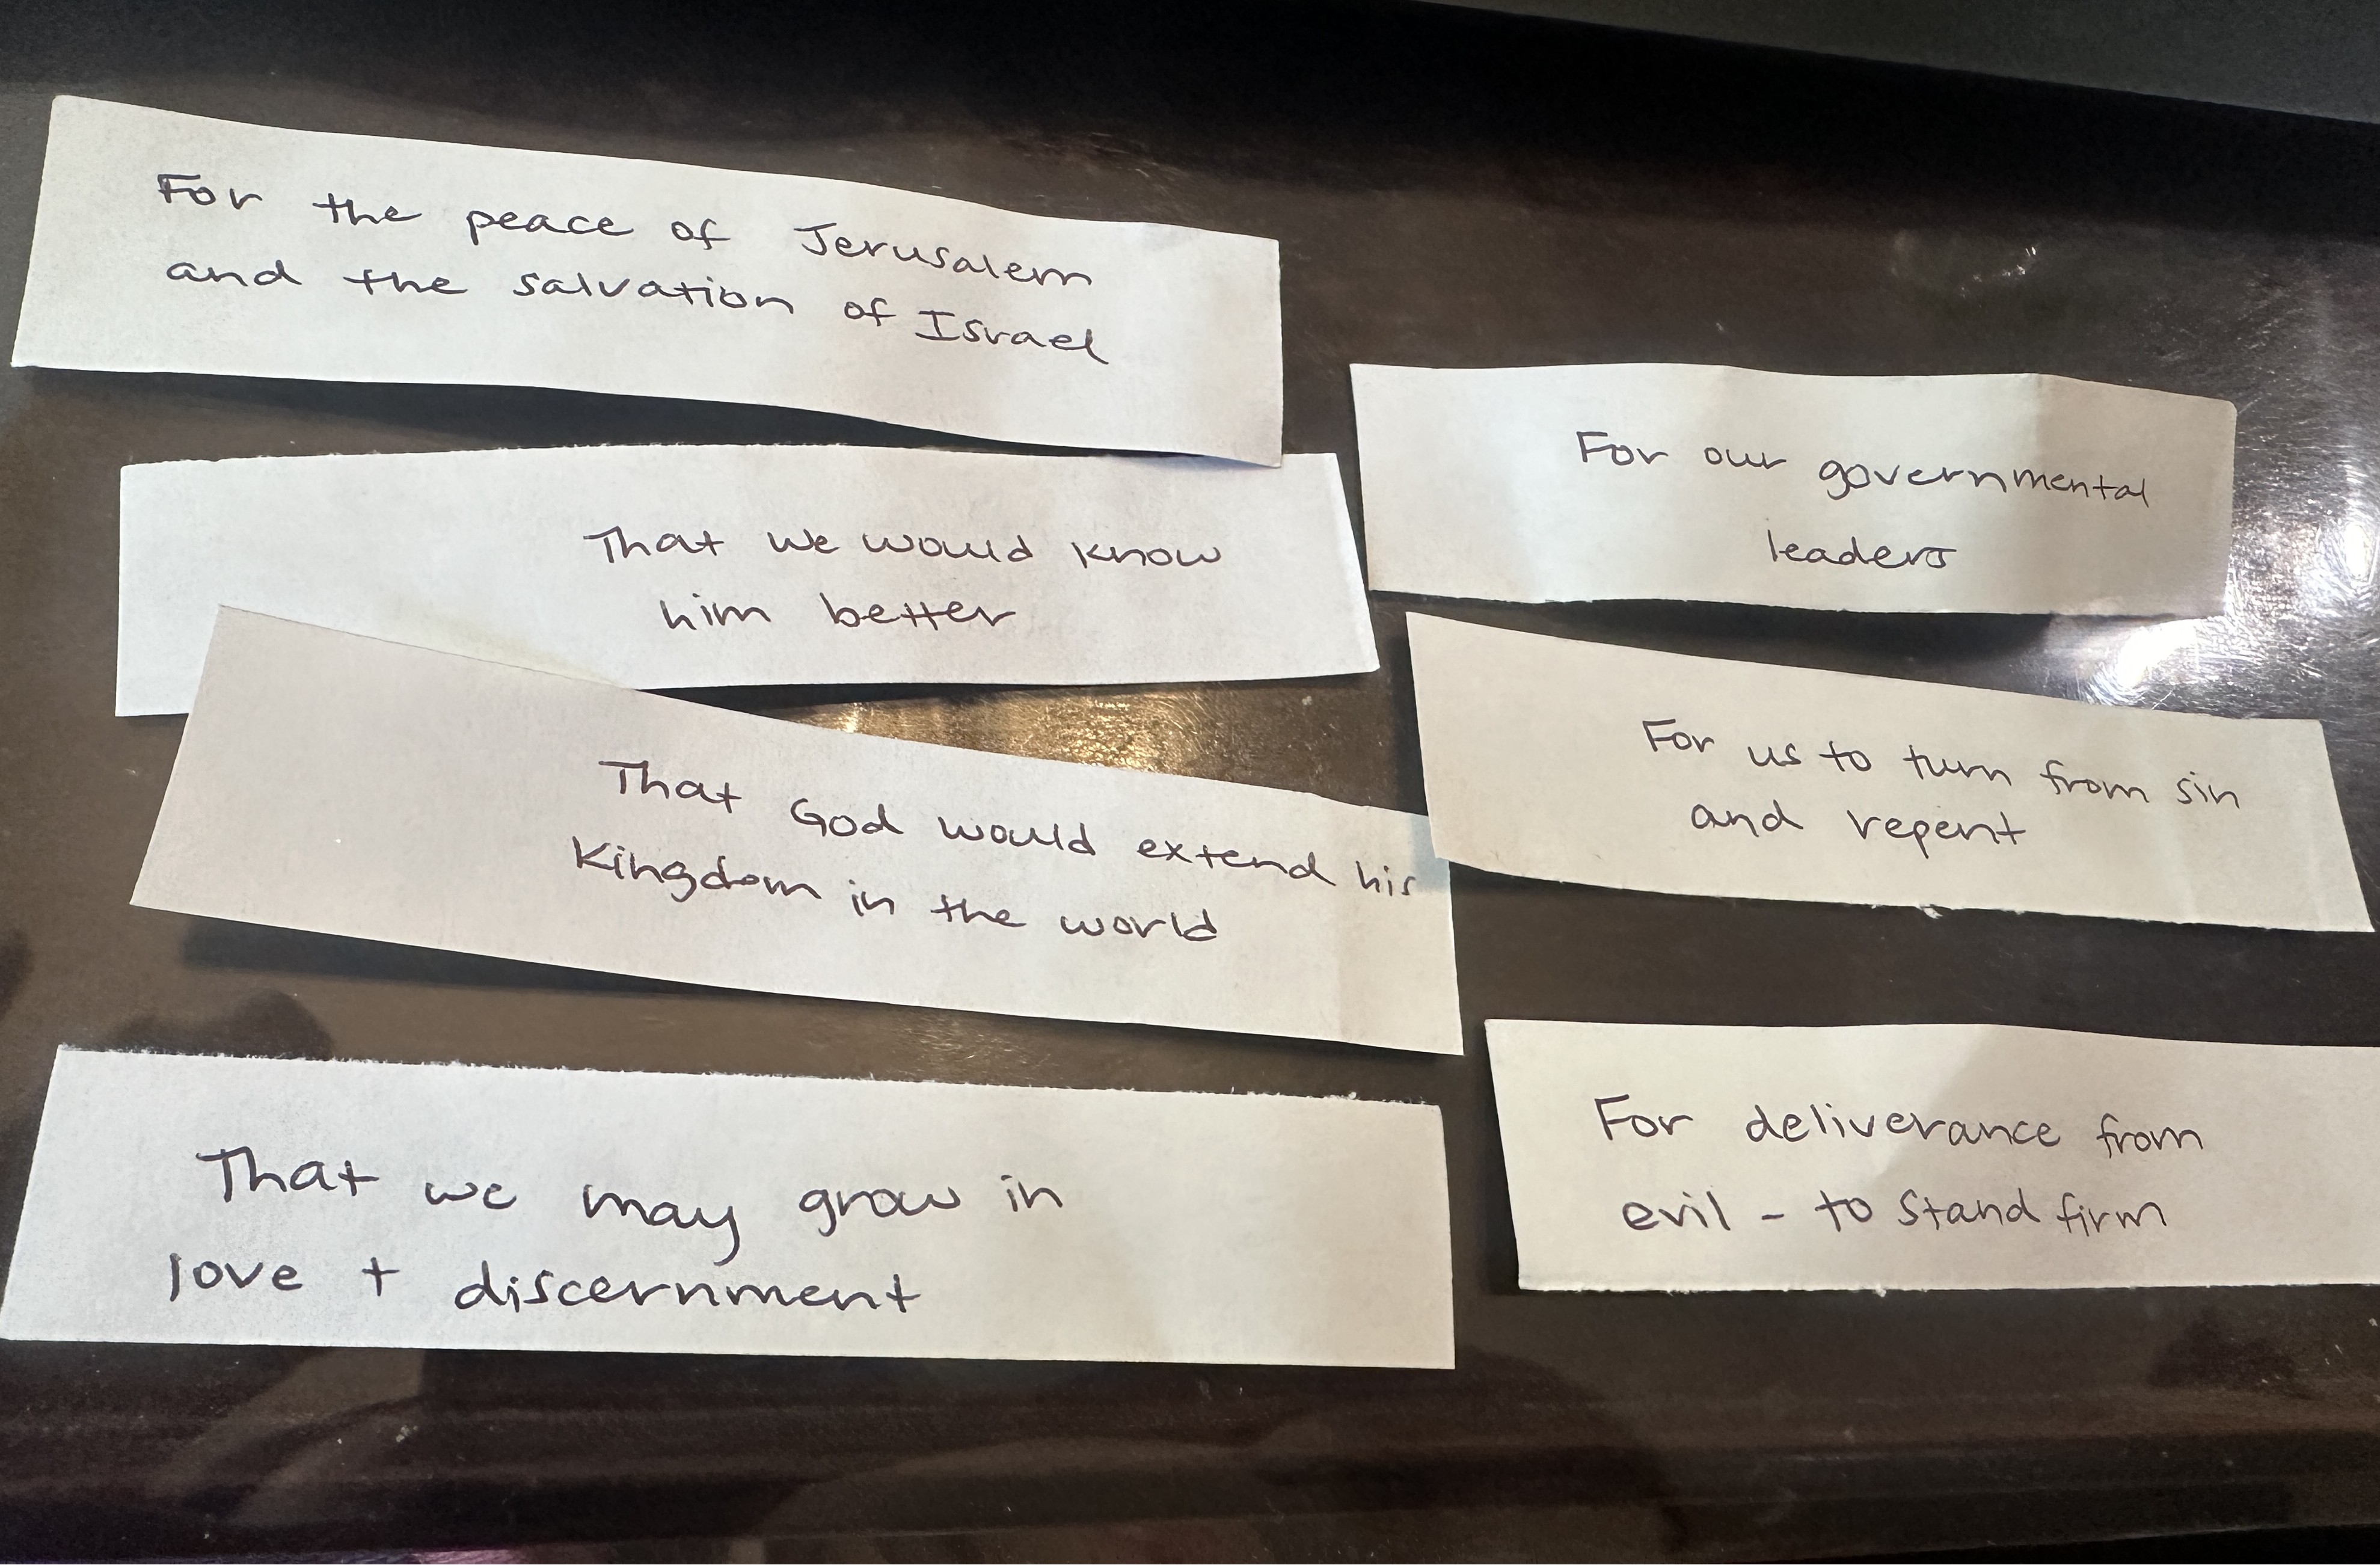 For the peace of Jerusalem
and the salvation of Israel
That we would know
him better
That God would extend his
Kingdom in the world
That we may grow in
love + discernment
For our governmental
leaders
For us to turn from sin
and repent
For deliverance from
evil - to stand firm